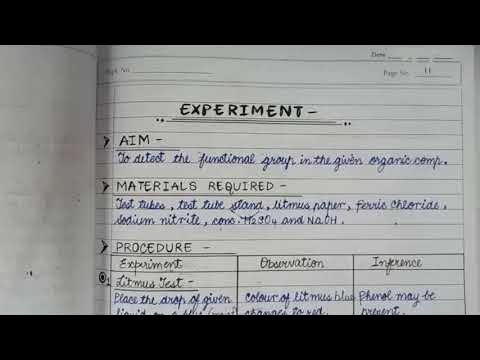 Date
Expt. No.
Page No. 11
EXPERIMENT -
AIM -
To detect the functional group in the given organic comp.
MATERIALS REQUIRED -
Test tubes, test tube stand, litmus paper, ferric chloride,
sodium nitrite, conc. H2SO4 and NaOH.
PROCEDURE -
Experiment Observation Inference
1 Litmus Test -
Place the drop of given colour of litmus blue Phenol may be
liquid on a blue changes to red. present.